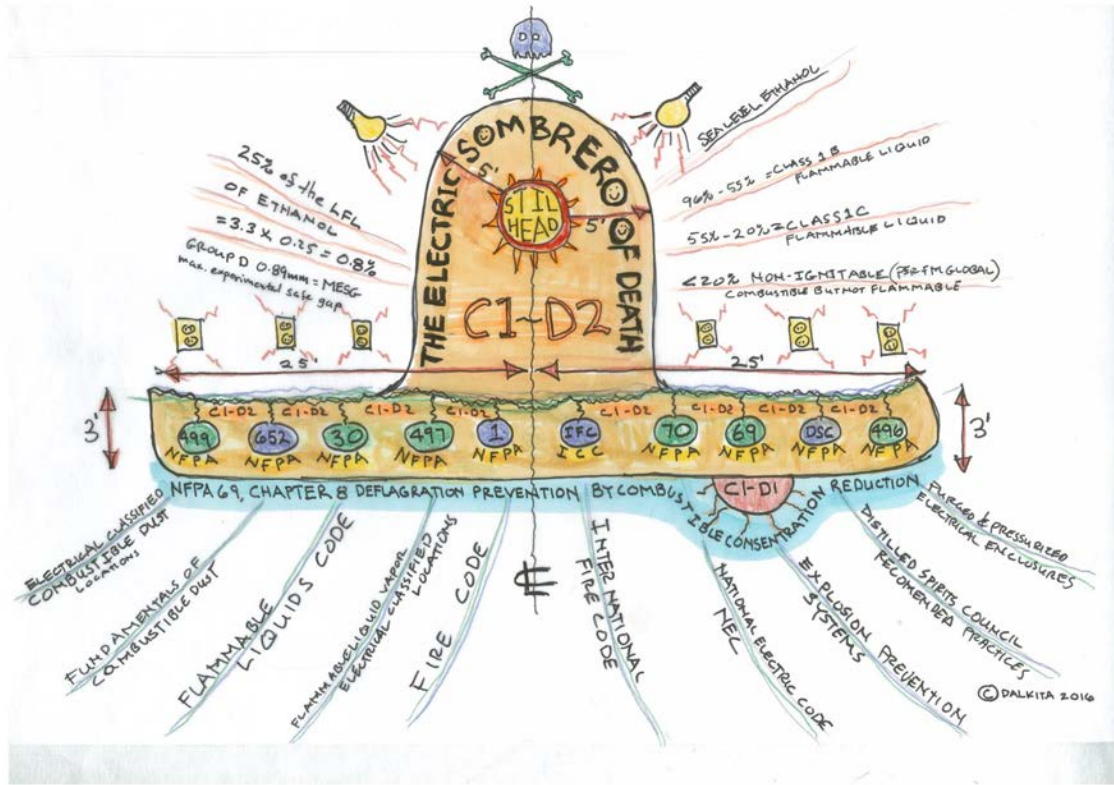 THE ELECTRIC SOMBRERO OF DEATH
5'
STIL
HEAD
5'
C1-D2
25% of the LFL
OF ETHANOL
= 3.3 X 0.25 = 0.8%
GROUP D 0.89mm = MESG
max. experimental safe gap
SEA LEVEL ETHANOL
96% - 55% = CLASS 1B
FLAMMABLE LIQUID
55% - 20% = CLASS 1C
FLAMMABLE LIQUID
<20% NON-IGNITABLE (PER FM GLOBAL)
COMBUSTIBLE BUT NOT FLAMMABLE
25'
25'
3'
3'
C1-D2 C1-D2 C1-D2 C1-D2 C1-D2 C1-D2 C1-D2 C1-D2
499
NFPA
652
NFPA
30
NFPA
497
NFPA
1
NFPA
IFC
ICC
70
NFPA
69
NFPA
DSC
NFPA
496
NFPA
C1-D1
NFPA 69, CHAPTER 8 DEFLAGRATION PREVENTION BY COMBUSTIBLE CONSENTRATION REDUCTION
ELECTRICAL CLASSIFIED
COMBUSTIBLE DUST
LOCATIONS
FUNDAMENTALS OF
COMBUSTIBLE DUST
FLAMMABLE
LIQUIDS CODE
FLAMMABLE LIQUID VAPOR
ELECTRICAL CLASSIFIED
LOCATIONS
FIRE CODE
INTERNATIONAL
FIRE CODE
NATIONAL ELECTRIC CODE
NEC
EXPLOSION PREVENTION
SYSTEMS
DISTILLED SPIRITS COUNCIL
RECOMENDED PRACTICES
PURGED & PRESSURIZED
ELECTRICAL ENCLOSURES
© DALKITA 2016